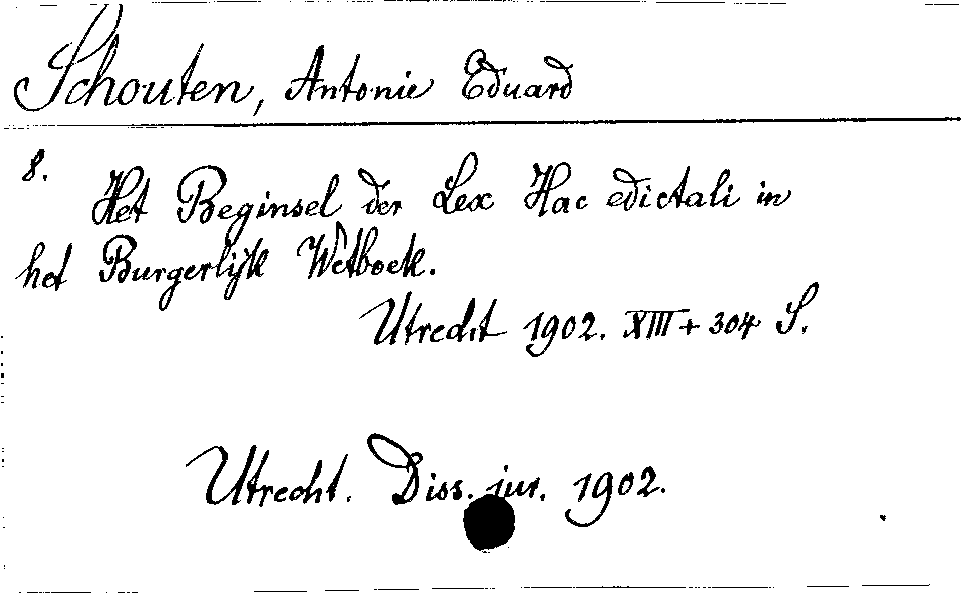 Schouten, Antonie Eduard
8.
Het Beginsel der Lex Hac edictali in
het Burgerlijk Wetboek.
Utrecht 1902. XIII + 304 S.
Utrecht. Diss. jur. 1902.